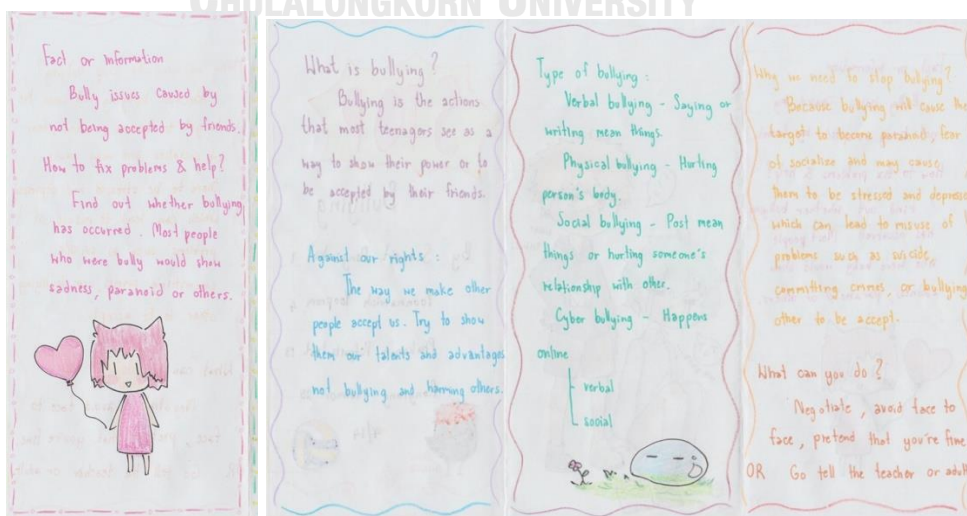 CHULALONGKORN UNIVERSITY
Fact or Information
Bully issues caused by
not being accepted by friends.
How to fix problems & help?
Find out whether bullying
has occurred. Most people
who were bully would show
sadness, paranoid or others.
What is bullying?
Bullying is the actions
that most teenagers see as a
way to show their power or to
be accepted by their friends.
Against our rights :
The way we make other
people accept us. Try to show
them our talents and advantages
not bullying and harming others.
Type of bullying :
Verbal bullying - Saying or
writing mean things.
Physical bullying - Hurting
person's body.
Social bullying - Post mean
things or hurting someone's
relationship with other.
Cyber bullying - Happens
online
verbal
social
Why we need to stop bullying?
Because bullying will cause the
target to become paranoid, fear
of socialize and may cause
them to be stressed and depressed
which can lead to misuse of
problems such as suicide,
committing crimes, or bullying
other to be accept.
What can you do?
Negotiate, avoid face to
face, pretend that you're fine
OR Go tell the teacher or adult